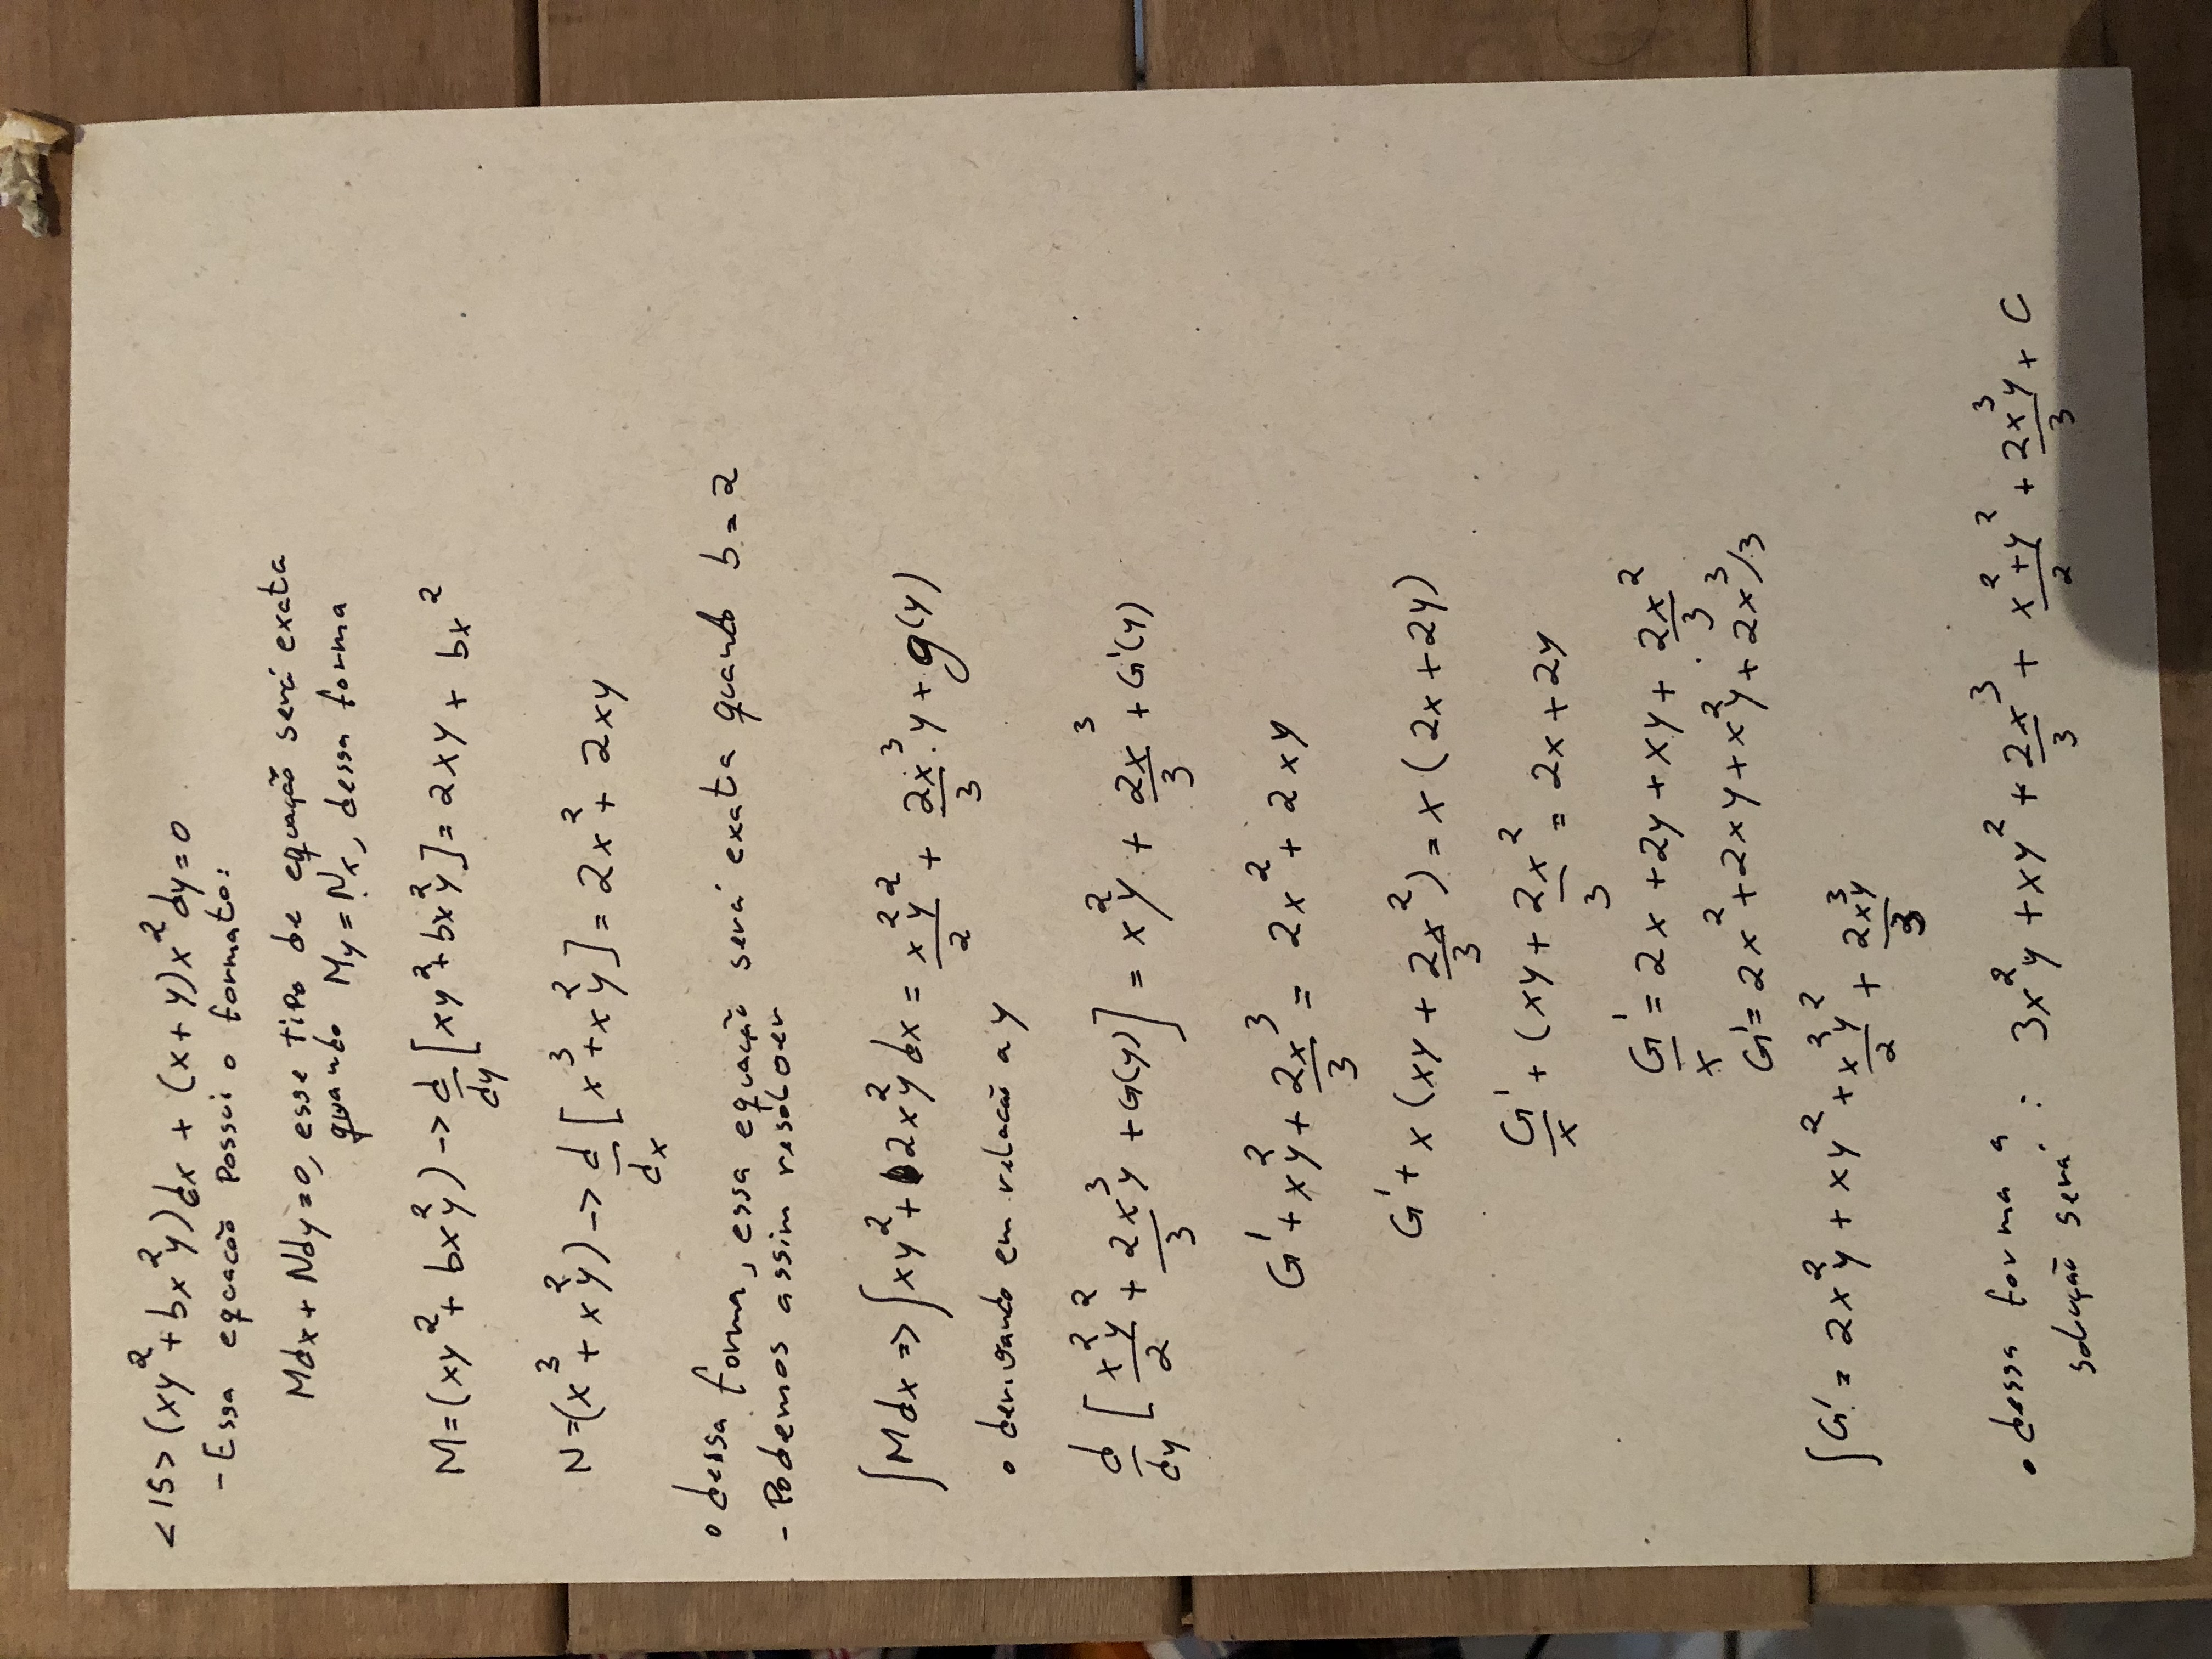 <15> (xy² + bx²y)dx + (x + y)x² dy = 0
- Essa equação possui o formato:
Mdx + Ndy = 0, esse tipo de equação será exata
quando My = Nx, dessa forma
M = (xy² + bx²y) -> d/dy [xy² + bx²y] = 2xy + bx²
N = (x³ + x²y) -> d/dx [x³ + x²y] = 2x² + 2xy
• dessa forma, essa equação será exata quando b = 2
- Podemos assim resolver
∫Mdx => ∫xy² + 2x²y dx = x²y²/2 + 2x³/3 · y + g(y)
• derivando em relação a y
d/dy [x²y²/2 + 2x³y/3 + G(y)] = x²y + 2x³/3 + G'(y)
G' + x²y + 2x³/3 = 2x² + 2xy
G' + x(xy + 2x²/3) = x(2x + 2y)
G'/x + (xy + 2x²/3 = 2x + 2y
G'/x = 2x + 2y + xy + 2x²/3
G' = 2x² + 2xy + x²y + 2x³/3
∫G' = 2x²y + xy² + x²y²/2 + 2x³y/3
• dessa forma a
solução será: 3x²y + xy² + 2x³/3 + x²+y²/2 + 2x³y/3 + C